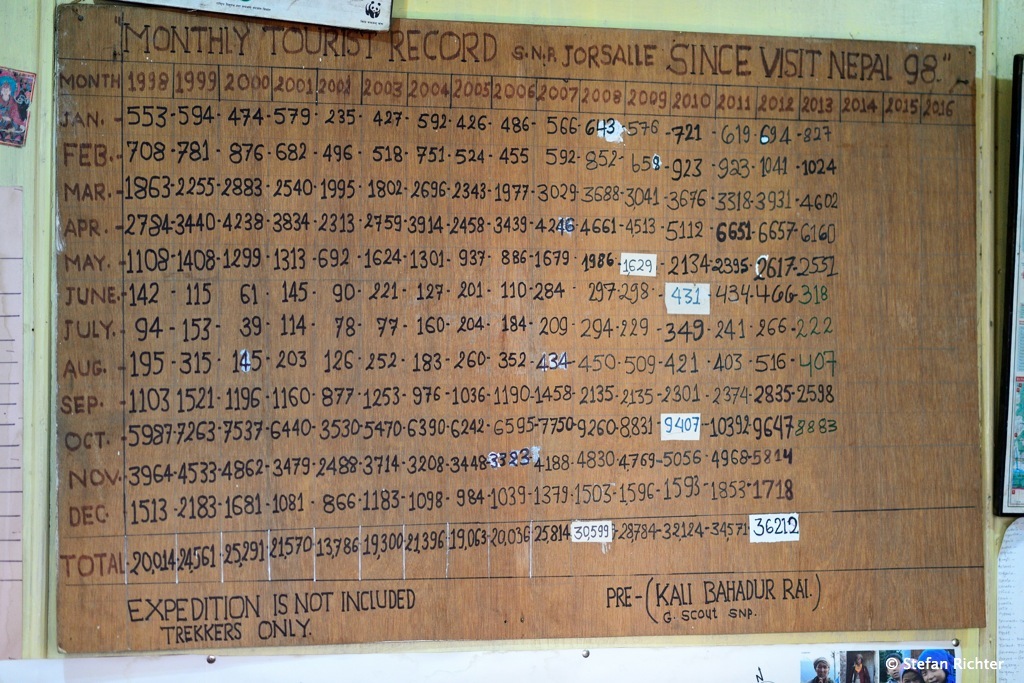 "MONTHLY TOURIST RECORD S.N.P. JORSALLE SINCE VISIT NEPAL 98."
MONTH 1998 1999 2000 2001 2002 2003 2004 2005 2006 2007 2008 2009 2010 2011 2012 2013 2014 2015 2016
JAN. - 553 - 594 - 474 - 579 - 235 - 427 - 592 - 426 - 486 - 566 - 643 - 576 - 721 - 619 - 694 - 827
FEB. - 708 - 781 - 876 - 682 - 496 - 518 - 751 - 524 - 455 592 - 852 - 658 - 923 - 923 - 1041 - 1024
MAR. - 1863 - 2255 - 2883 - 2540 - 1995 - 1802 - 2696 - 2343 - 1977 - 3029 - 3688 - 3041 - 3676 - 3318 - 3931 - 4602
APR. - 2784 - 3440 - 4238 - 3834 - 2313 - 2759 - 3914 - 2458 - 3439 - 4246 - 4661 - 4513 - 5112 - 6651 - 6657 - 6160
MAY. - 1108 - 1408 - 1299 - 1313 - 692 - 1624 - 1301 - 937 - 886 - 1679 - 1986 - 1629 - 2134 - 2395 - 2617 - 2551
JUNE. - 142 - 115 61 - 145 - 90 - 221 - 127 - 201 - 110 - 284 - 297 - 298 - 431 - 434 - 466 - 318
JULY. - 94 - 153 - 39 - 114 - 78 - 77 - 160 - 204 - 184 - 209 - 294 - 229 - 349 - 241 - 266 - 222
AUG. - 195 - 315 - 145 - 203 - 126 - 252 - 183 - 260 - 352 - 434 - 450 - 509 - 421 - 403 - 516 - 407
SEP. - 1103 1521 - 1196 - 1160 - 877 - 1253 - 976 - 1036 - 1190 - 1458 - 2135 - 2135 - 2301 - 2374 - 2835 - 2598
OCT. - 5987 - 7263 - 7537 - 6440 - 3530 - 5470 - 6390 - 6242 - 6595 - 7750 - 9260 - 8831 - 9407 - 10392 - 9647 - 8883
NOV. - 3964 - 4533 - 4862 - 3479 - 2488 - 3714 - 3208 - 3448 - 3323 - 4188 - 4830 - 4769 - 5056 - 4968 - 5814
DEC. - 1513 - 2183 - 1681 - 1081 - 866 - 1183 - 1098 - 984 - 1039 - 1379 - 1503 - 1596 - 1593 - 1853 - 1718
TOTAL - 20,014 - 24,561 - 25,291 - 21570 - 13,786 - 19,300 - 21,396 - 19,063 - 20,036 - 25,814 - 30,599 - 28,784 - 32,124 - 34,571 - 36212
EXPEDITION IS NOT INCLUDED
TREKKERS ONLY.
PRE - (KALI BAHADUR RAI.)
G. SCOUT SNP.
© Stefan Richter